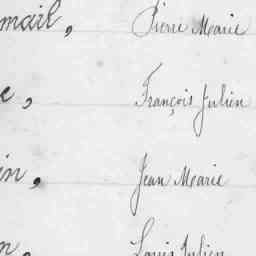 mail, Pierre Marie
e, François Julien
in, Jean Marie
n, Louis Julien